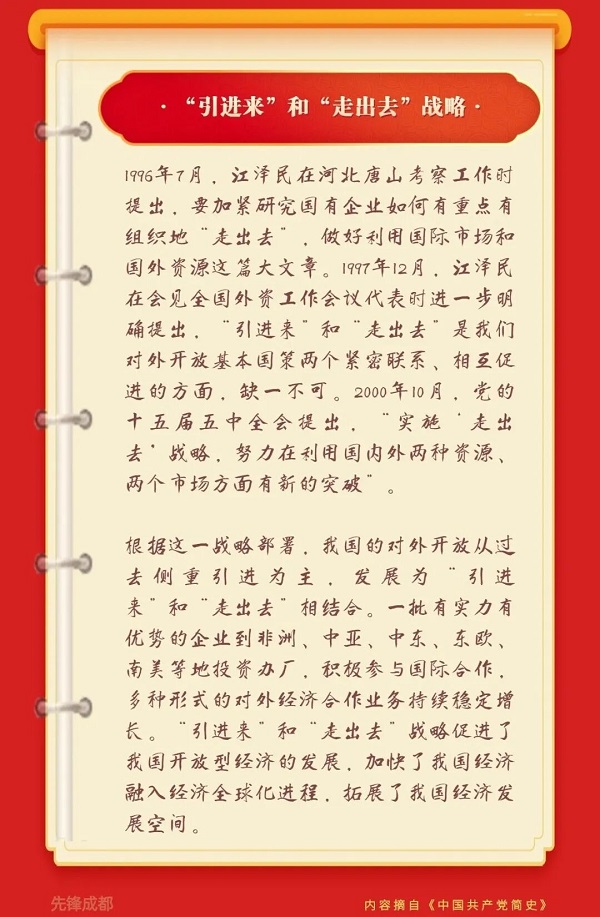 ·“引进来”和“走出去”战略·
1996年7月，江泽民在河北唐山考察工作时
提出，要加紧研究国有企业如何有重点有
组织地“走出去”，做好利用国际市场和
国外资源这篇大文章。1997年12月，江泽民
在会见全国外资工作会议代表时进一步明
确提出，“引进来”和“走出去”是我们
对外开放基本国策两个紧密联系、相互促
进的方面，缺一不可。2000年10月，党的
十五届五中全会提出，“实施‘走出
去’战略，努力在利用国内外两种资源、
两个市场方面有新的突破”。
根据这一战略部署，我国的对外开放从过
去侧重引进为主，发展为“引进
来”和“走出去”相结合。一批有实力有
优势的企业到非洲、中亚、中东、东欧、
南美等地投资办厂，积极参与国际合作，
多种形式的对外经济合作业务持续稳定增
长。“引进来”和“走出去”战略促进了
我国开放型经济的发展，加快了我国经济
融入经济全球化进程，拓展了我国经济发
展空间。
先锋成都
内容摘自《中国共产党简史》